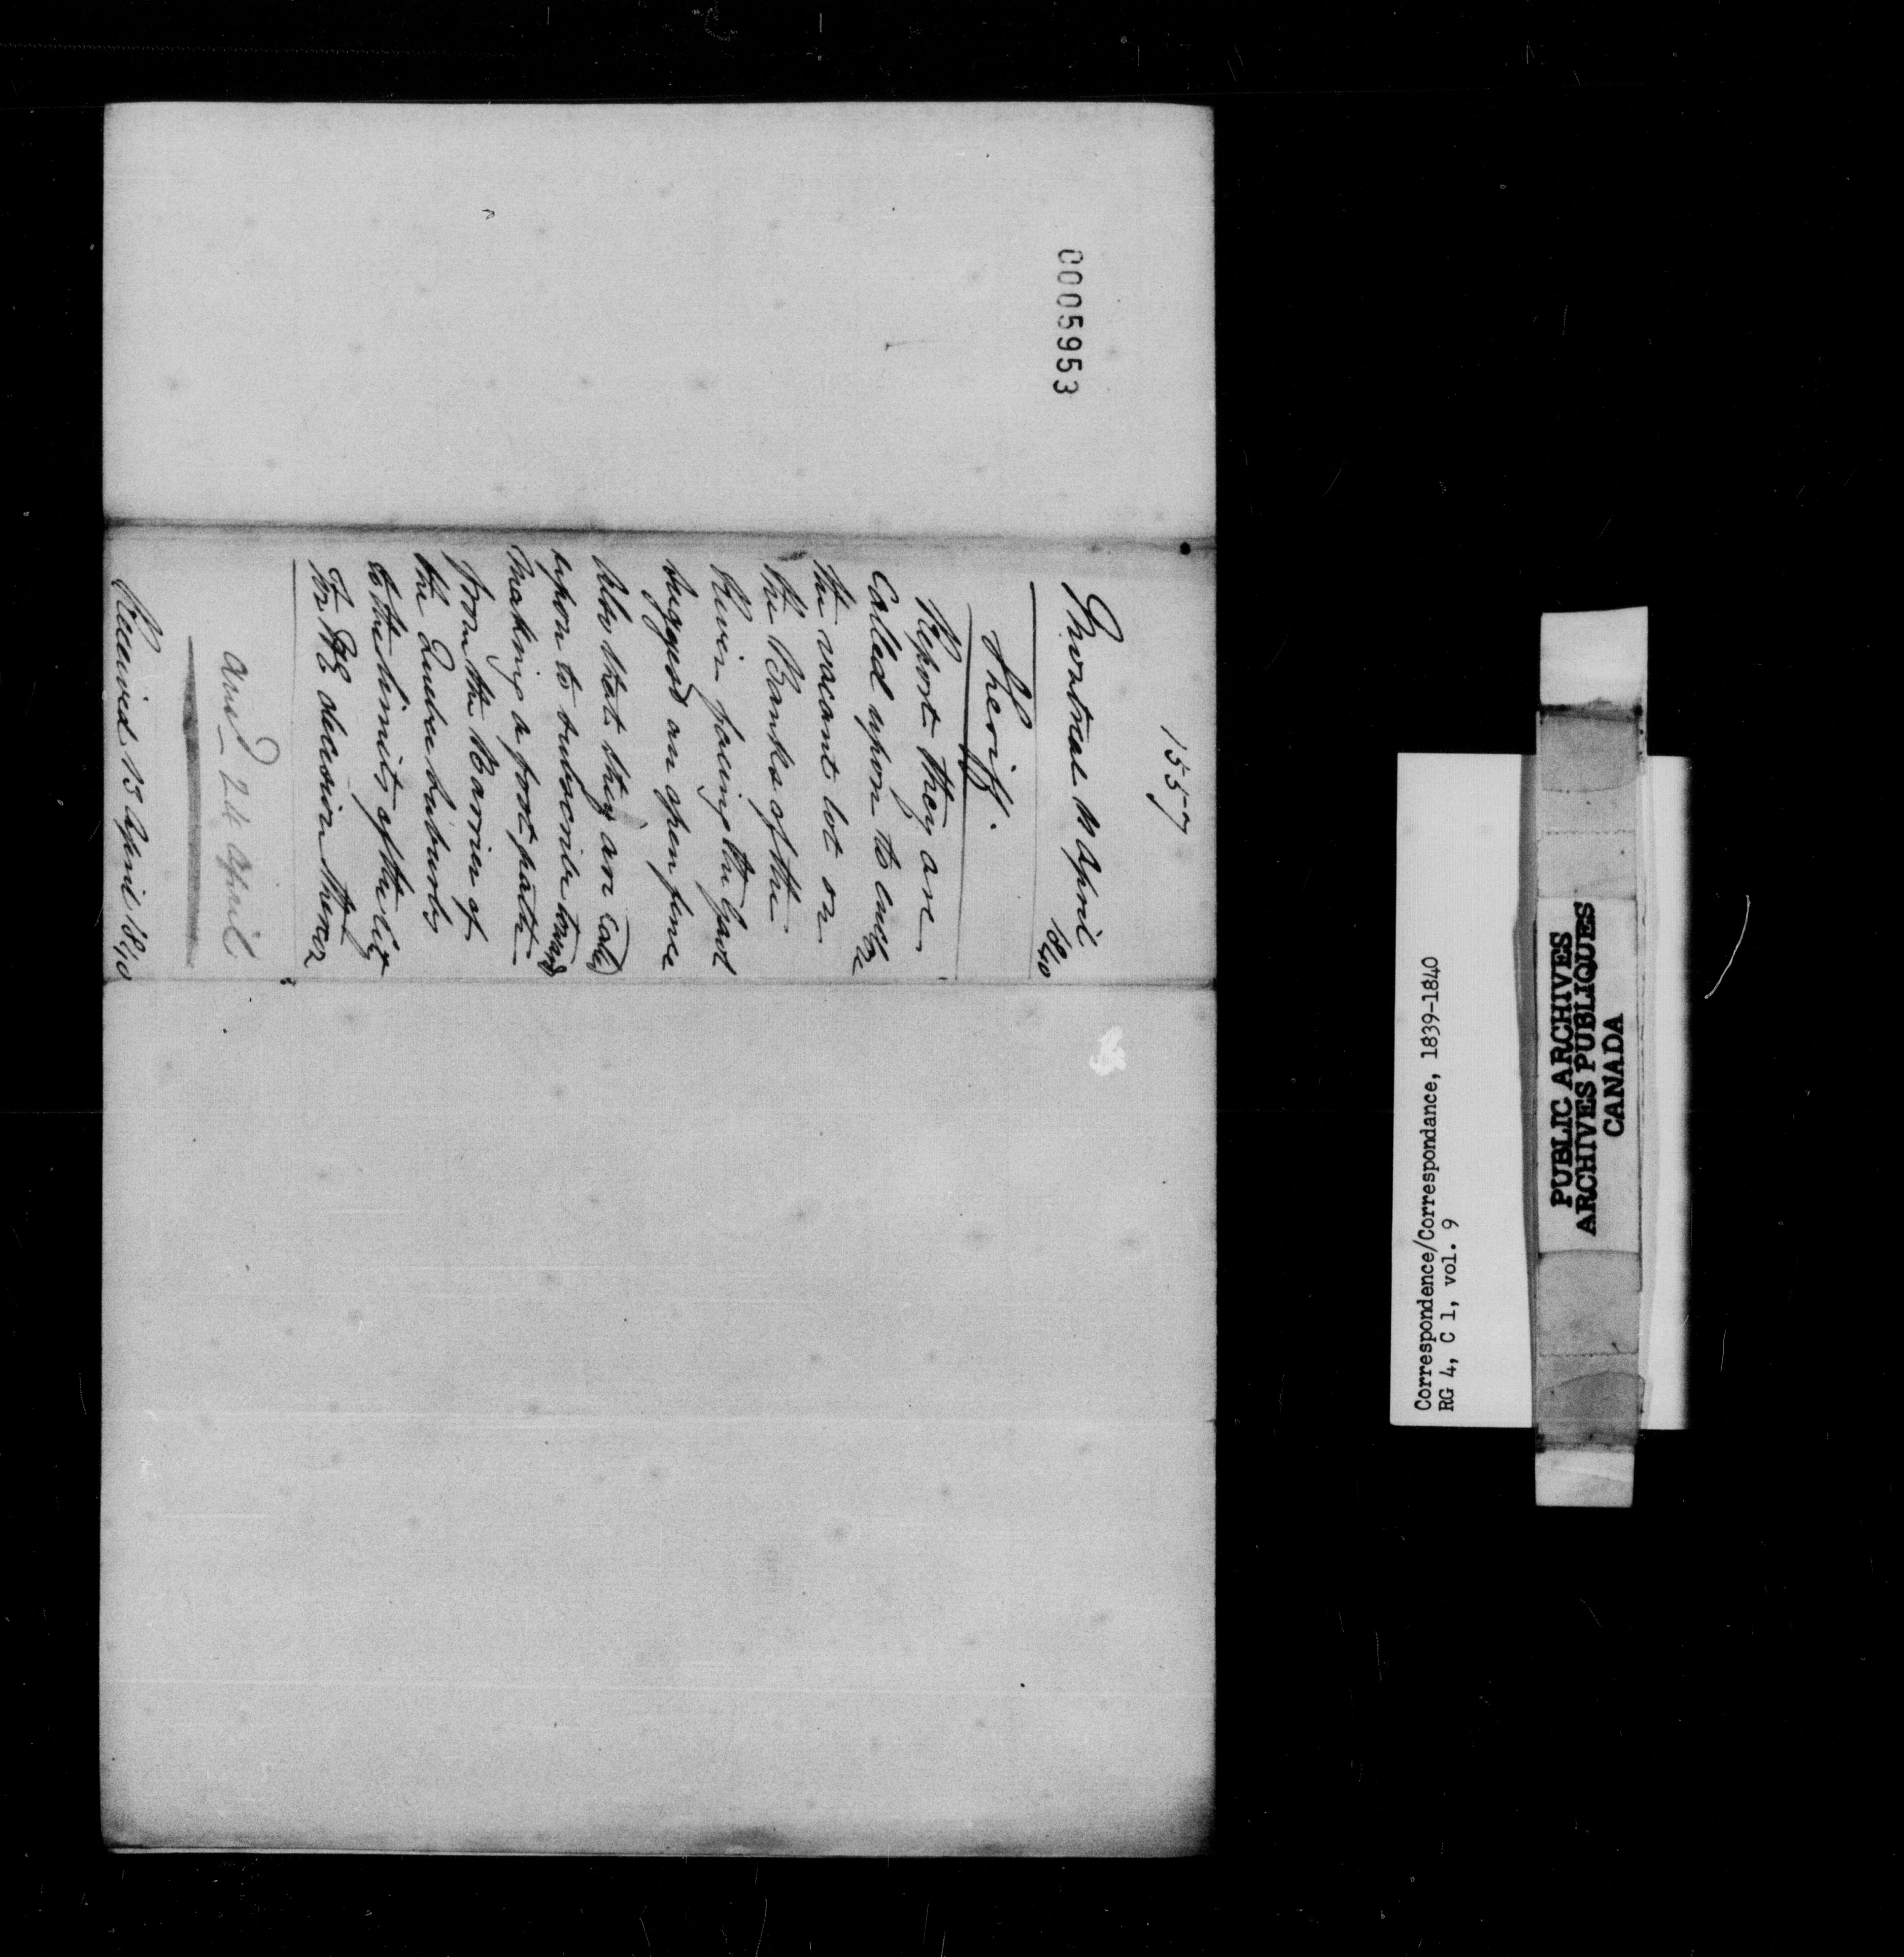 1557
Montreal 11 April
1840
Sheriff.
Report they are
Called upon to enclose
the vacant lot on
the Banks of the
River facing the Gaol
suggest an open fence
Also that they are Called
upon to subscribe towards
making a foot path
from the Barrier of
the Quebec suburbs
to the limits of the City
For decision thereon
Ansd 24 April
Received 13 April 1840
0005953
Correspondence/Correspondance, 1839-1840
RG 4, C 1, vol. 9
PUBLIC ARCHIVES
ARCHIVES PUBLIQUES
CANADA